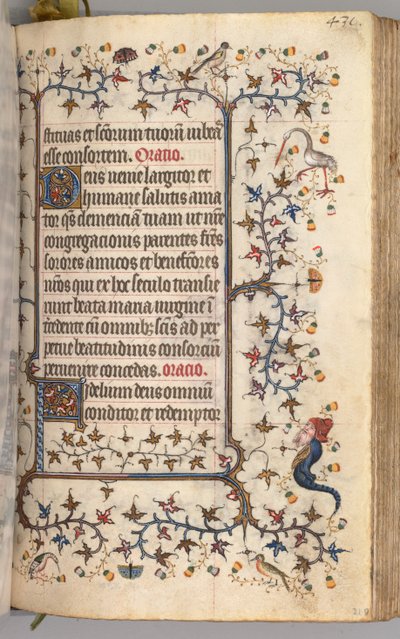 stituas et scõrum tuorũ iubea
esse consortem. Oratio.
Deus uenie largitor et
humane salutis ama
tor q̃s clemenciam tuam ut nr̃e
congregacionis parentes fr̃es
sorores amicos et benefc̃ores
nr̃os qui ex hoc seculo transie
runt beata maria uirgine ĩ
tcedente cũ omnibꝫ scĩs ad per
petue beatitudinis consorciũ
peruenire concedas. oratio.
Fidelium deus omniũ
conditor et redemptor